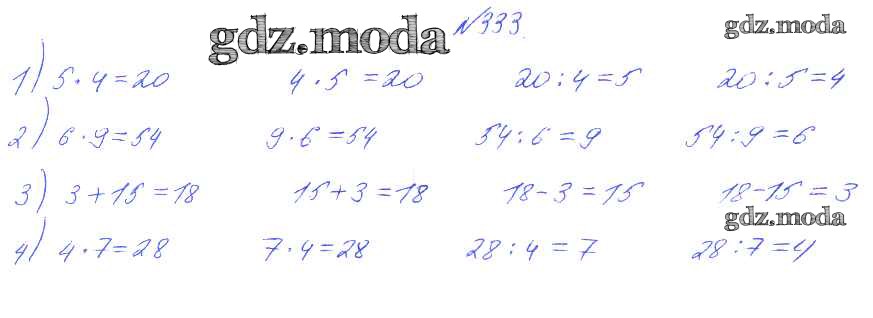 gdz.moda №333. gdz.moda
1) 5·4=20 4·5=20 20:4=5 20:5=4
2) 6·9=54 9·6=54 54:6=9 54:9=6
3) 3+15=18 15+3=18 18-3=15 18-15=3
gdz.moda
4) 4·7=28 7·4=28 28:4=7 28:7=4